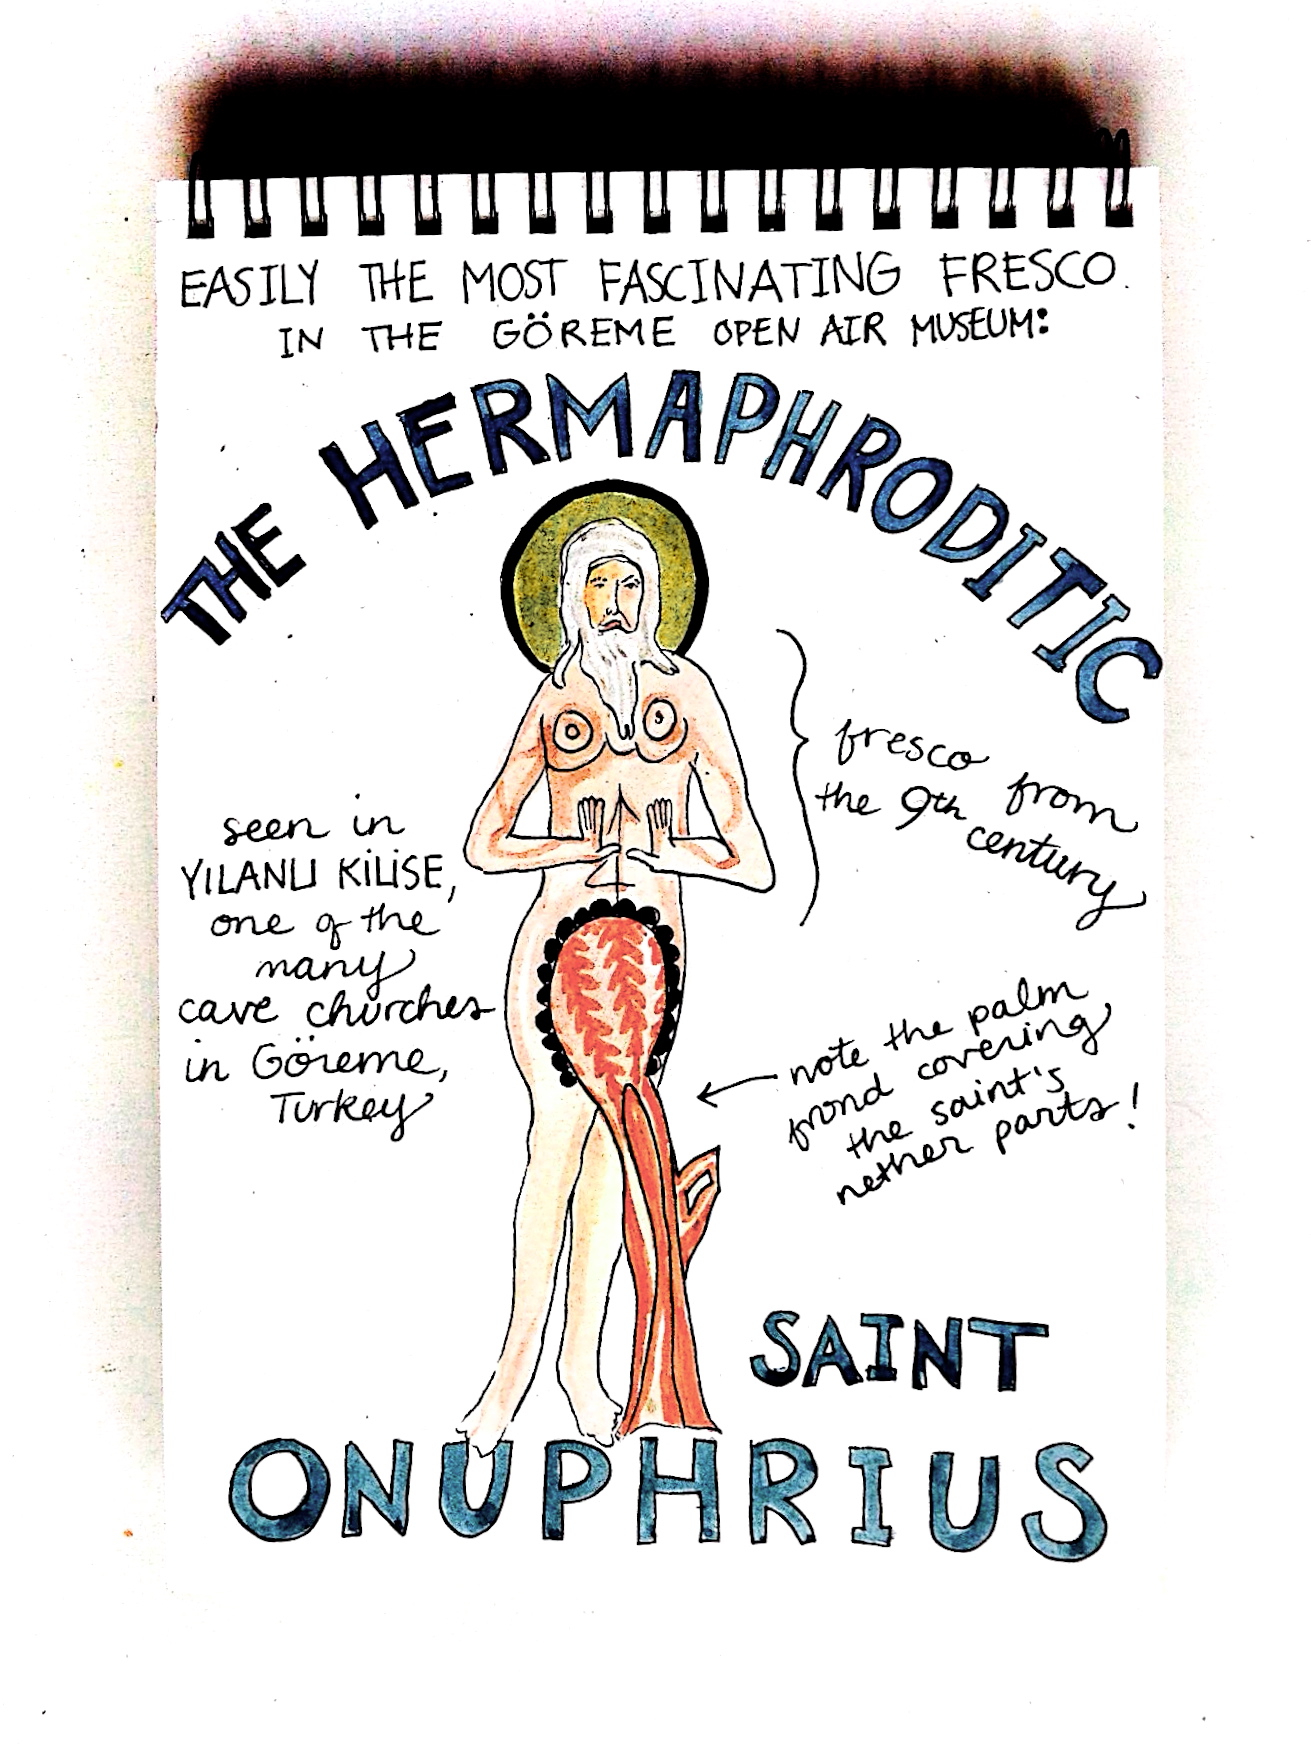 EASILY THE MOST FASCINATING FRESCO
IN THE GÖREME OPEN AIR MUSEUM:
THE HERMAPHRODITIC
fresco from
the 9th
century
seen in
YILANLI KİLİSE,
one of the
many
cave churches
in Göreme,
Turkey
note the palm
frond covering
the saint's
nether parts!
SAINT
ONUPHRIUS